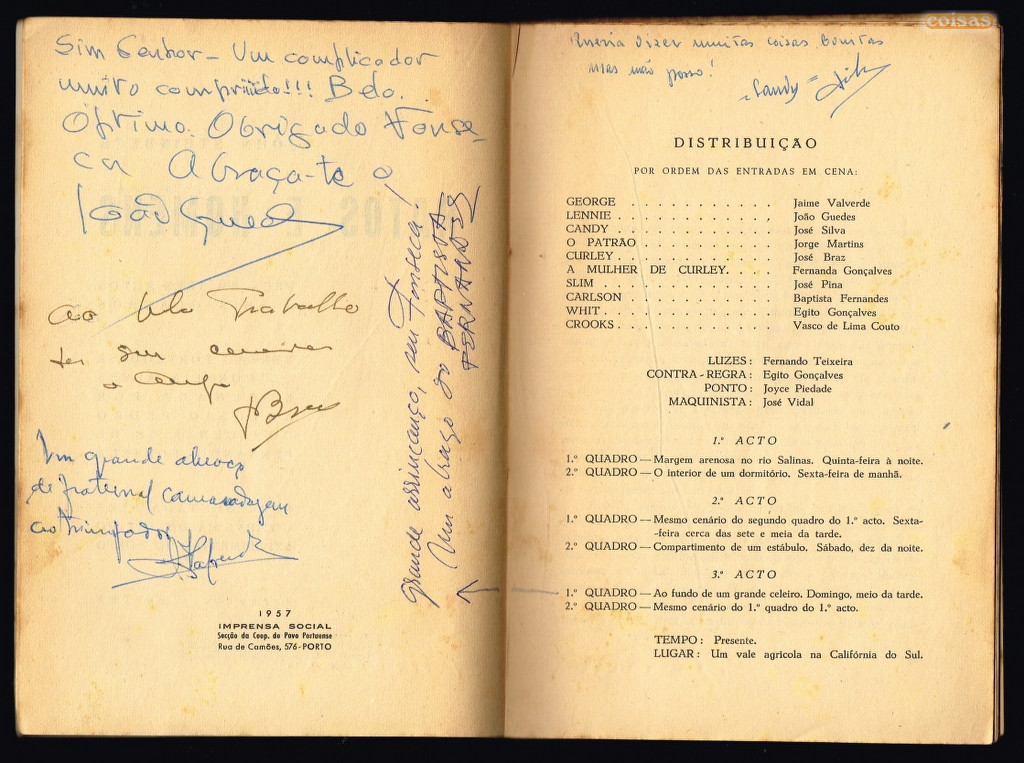 Sim Senhor - Um complicador
muito comprido!!! Belo.
Óptimo. Obrigado Fonse-
ca Abraça-te o
João Guedes
ao belo Trabalho
Braz
Um grande abraço
de fraternal camaradagem
ao triunfador
grande arrincanço, seu Fonseca!
Um abraço do BAPTISTA
FERNANDES
1957
IMPRENSA SOCIAL
Secção da Coop. do Povo Portuense
Rua de Camões, 576-PORTO
coisas
Queria dizer muitas coisas bonitas
mas não posso!
"Candy" Silva
DISTRIBUIÇÃO
POR ORDEM DAS ENTRADAS EM CENA:
GEORGE . . . . . . . . . . . Jaime Valverde
LENNIE . . . . . . . . . . . João Guedes
CANDY . . . . . . . . . . . José Silva
O PATRÃO . . . . . . . . . . Jorge Martins
CURLEY . . . . . . . . . . . José Braz
A MULHER DE CURLEY. . . . Fernanda Gonçalves
SLIM . . . . . . . . . . . . José Pina
CARLSON . . . . . . . . . . Baptista Fernandes
WHIT . . . . . . . . . . . . Egito Gonçalves
CROOKS . . . . . . . . . . . Vasco de Lima Couto
LUZES: Fernando Teixeira
CONTRA-REGRA: Egito Gonçalves
PONTO: Joyce Piedade
MAQUINISTA: José Vidal
1.º ACTO
1.º QUADRO — Margem arenosa no rio Salinas. Quinta-feira à noite.
2.º QUADRO — O interior de um dormitório. Sexta-feira de manhã.
2.º ACTO
1.º QUADRO — Mesmo cenário do segundo quadro do 1.º acto. Sexta-
-feira cerca das sete e meia da tarde.
2.º QUADRO — Compartimento de um estábulo. Sábado, dez da noite.
3.º ACTO
1.º QUADRO — Ao fundo de um grande celeiro. Domingo, meio da tarde.
2.º QUADRO — Mesmo cenário do 1.º quadro do 1.º acto.
TEMPO: Presente.
LUGAR: Um vale agrícola na Califórnia do Sul.